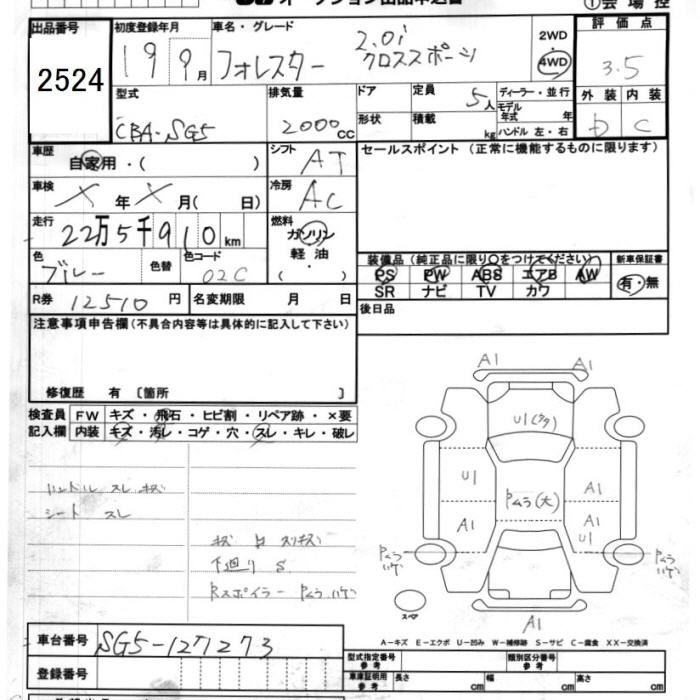 ①会場控
出品番号
2524
初度登録年月
19 9月
車名・グレード
フォレスター 2.0i
クロススポーツ
2WD
・
4WD
評価点
3.5
型式
CBA-SG5
排気量
2000cc
ドア
定員
5人
ディーラー・並行
モデル
年式 年
形状
積載
kg
ハンドル 左・右
外装 内装
D C
車歴
自家用・( )
シフト
AT
セールスポイント (正常に機能するものに限ります)
車検
X 年 X 月( 日)
冷房
AC
走行
22万5千910km
燃料
ガソリン
軽油
・
( )
色
ブルー
色替
色コード
02C
装備品 (純正品に限り○をつけてください)
新車保証書
PS PW ABS エアB AW
SR ナビ TV カワ
有・無
R券 12510 円
名変期限 月 日
後日品
注意事項申告欄(不具合内容等は具体的に記入して下さい)
修復歴 有 〔箇所 〕
検査員
記入欄
FW キズ・飛石・ヒビ割・リペア跡・×要
内装 キズ・汚レ・コゲ・穴・スレ・キレ・破レ
ハンドル スレ キズ
シート スレ
下廻り S
Rスポイラー Pムラ ハゲ
A1
A1
U1(クク)
U1
Pムラ(大)
A1
A1
A1
U1
Pムラ
ハゲ
Pムラ
ハゲ
スペア
A1
A-キズ E-エクボ U-凹み W-補修跡 S-サビ C-腐食 XX-交換済
車台番号 SG5-127273
登録番号
型式指定番号
参考
類別区分番号
参考
車庫証明用
参考
長さ cm
幅 cm
高さ cm